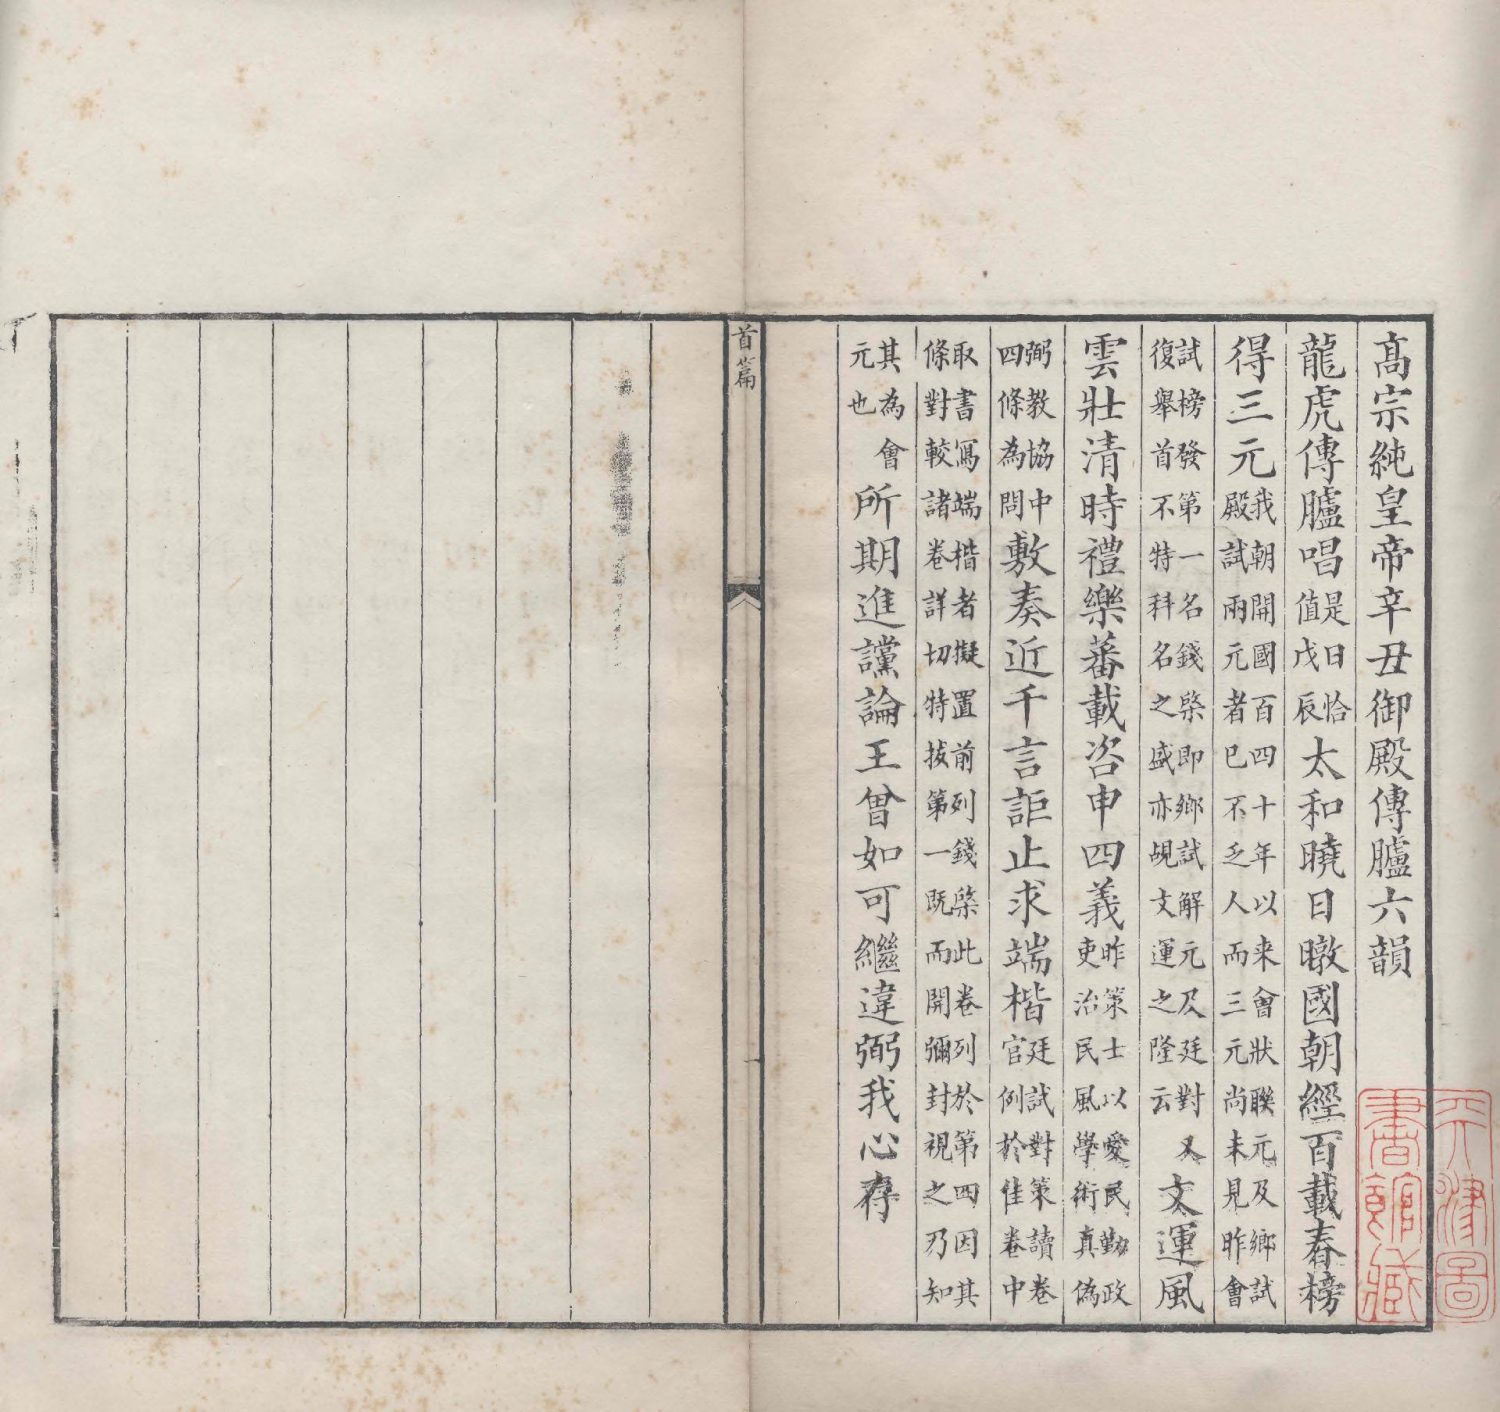 高宗純皇帝辛丑御殿傳臚六韻
龍虎傳臚唱是日恰值戊辰太和曉日暾國朝經百載春榜
得三元我朝開國百四十年以来會狀聯元及鄉試殿試兩元者已不乏人而三元尚未見昨會
試榜發第一名錢棨即鄉試解元及廷對又復舉首不特科名之盛亦覘文運之隆云文運風
雲壯清時禮樂蕃載咨申四義昨策士以愛民勤政吏治民風學術真偽
弼教協中四條為問敷奏近千言詎止求端楷廷試對策讀卷官例於佳卷中
取書寫端楷者擬置前列錢棨此卷列於第四因其條對較諸卷詳切特拔第一既而開彌封視之乃知
其為會元也所期進讜論王曾如可繼違弼我心存
首篇
天津圖書館藏